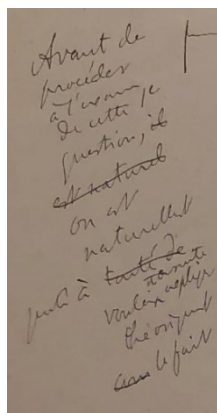 Avant de
procéder
à l'examen
de cette
question, il
est naturel
on est
naturellement
porté à tenté de
ensuite
vouloir expliquer
théoriquement
le fait